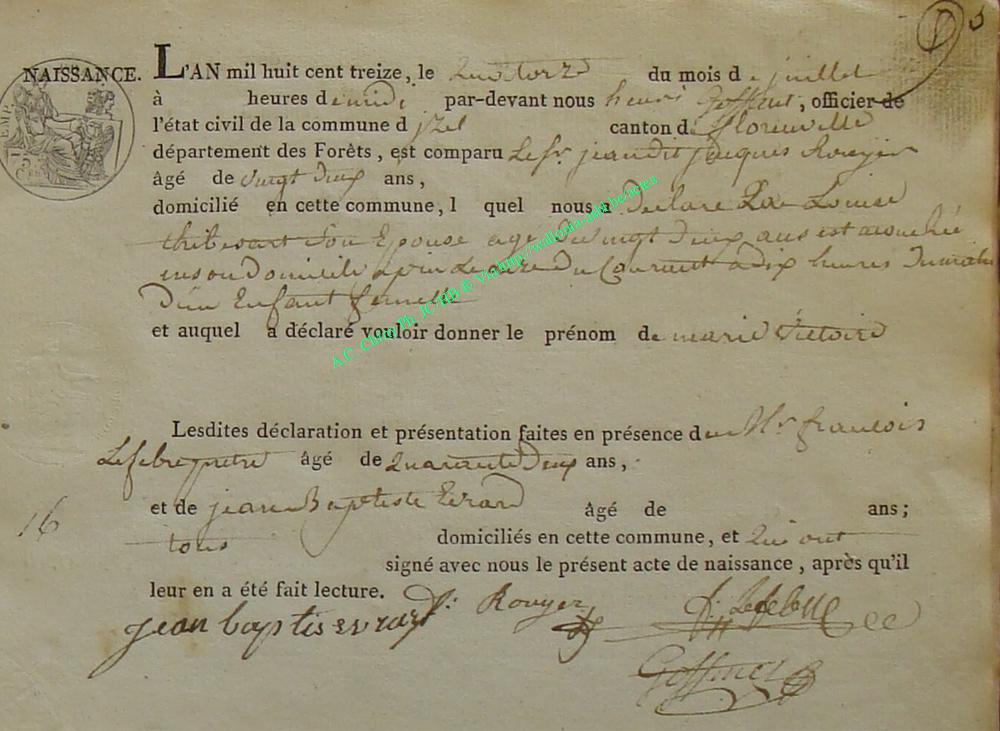 NAISSANCE. L'AN mil huit cent treize, le quatorze du mois de juillet
à heures de midi par-devant nous henri Goffinet, officier de
l'état civil de la commune d'izel canton de florenville
département des Forêts, est comparu Le sr. jean dit jacques Rouyer
âgé de vingt deux ans,
domicilié en cette commune, l quel nous a declaré que Louise
son Epouse agé de vingt deux ans est accouchée
en son domicile du Courant a dix heures du matin
d'un Enfant femelle
et auquel a déclaré vouloir donner le prénom de marie victoire
Lesdites déclaration et présentation faites en présence de Mr. françois
Lefebre pretre âgé de quarante deux ans,
et de jean Baptiste Evrard âgé de ans;
16
tous domiciliés en cette commune, et qui ont
signé avec nous le présent acte de naissance, après qu'il
leur en a été fait lecture.
Rouyer
jean baptis evrard
Goffinet